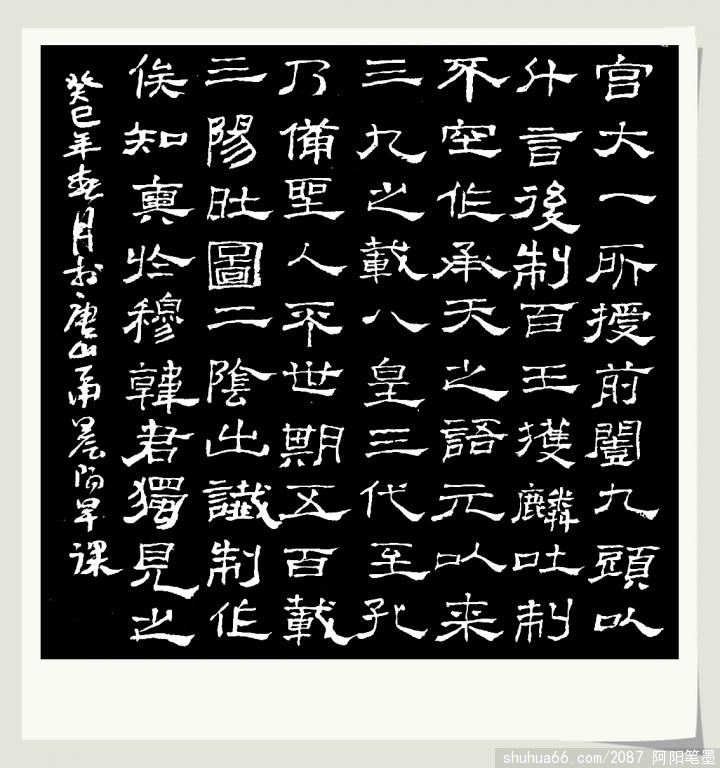 宫大一所授前闓九頭以
什言後制百王獲麟吐制
不空作承天之語元以来
三九之載八皇三代至孔
乃備聖人不世期五百載
三陽吐圖二陰出讖制作
俟知奥於穆韓君獨見之
癸巳年春月於唐山雨晨阳早课
shuhua66.com/2087 阿阳笔墨